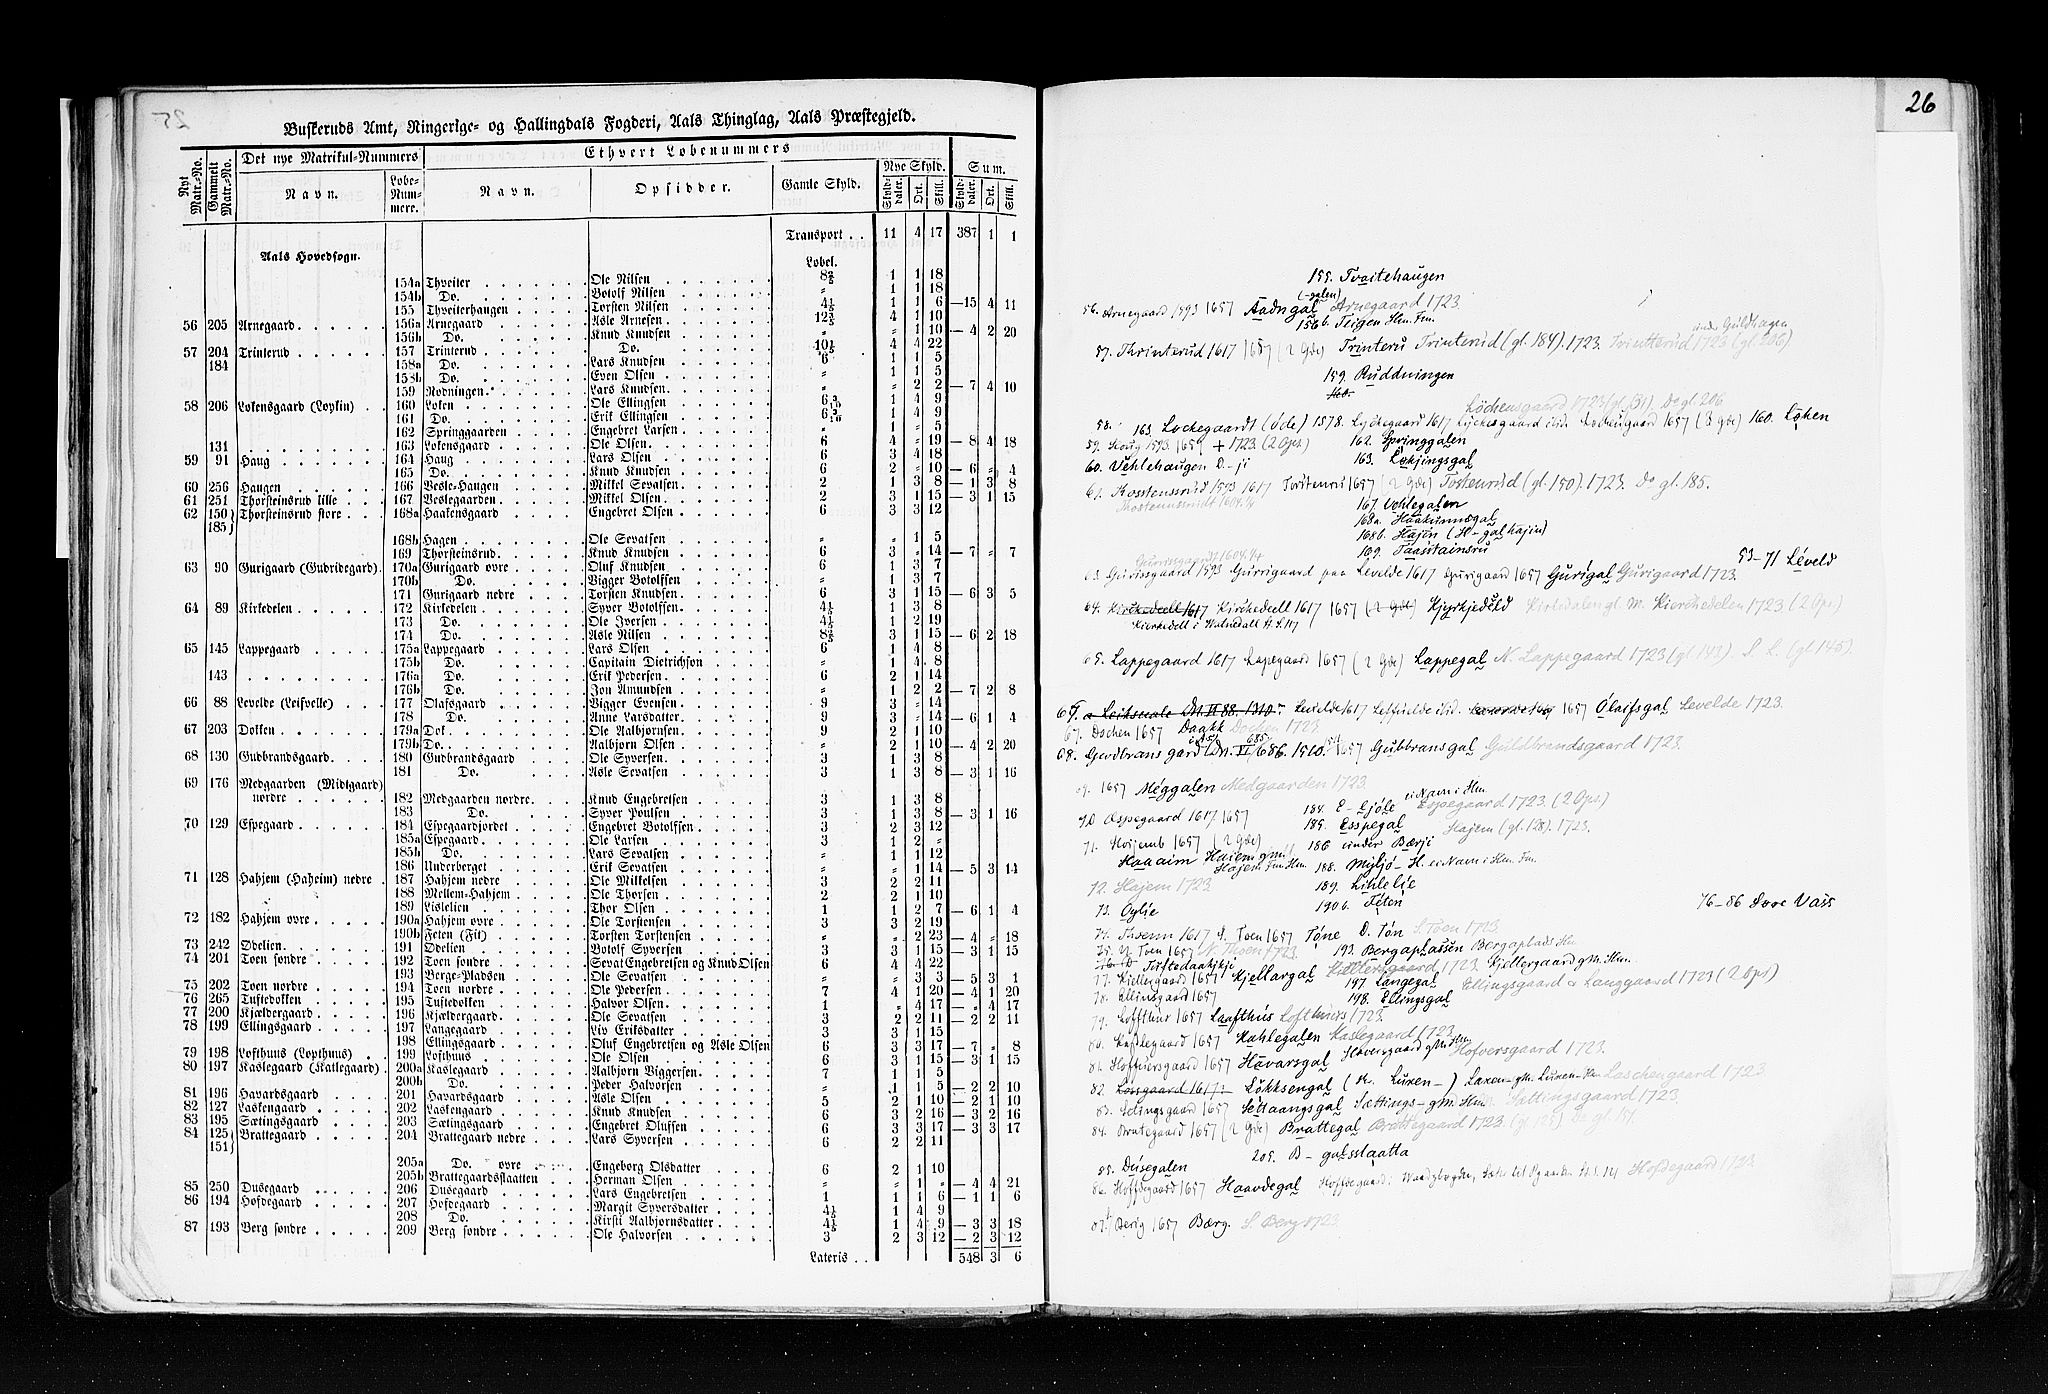 Buskeruds Amt, Ringerige- og Hallingdals Fogderi, Aals Thinglag, Aals Præstegjeld.
Nyt Matr.-No. | Gammelt Matr.-No. | Det nye Matrikul-Nummers Navn. | Løbe-Nummere. | Ethvert Løbenummers Navn. | Opsidder. | Gamle Skyld. | Nye Skyld. Skylddaler. Ort. Skill. | Sum. Skylddaler. Ort. Skill.
Transport . . 11 4 17 387 1 1
Aals Hovedsogn. Løbel.
154a Thveiter Ole Nilsen 8⅖ 1 1 18
154b Do. Botolf Nilsen " 1 1 18
155 Thveiterhaugen Torsten Nilsen 4⅕ 1 1 6 —15 4 11
56 205 Arnegaard 156a Arnegaard Asle Arnesen 12⅗ 4 1 10
156b Do. Knud Knudsen " " 1 10 — 4 2 20
57 204 Trinterud 157 Trinterud Do. 10⅕ 4 4 22
184 158a Do. Lars Knudsen 6 1 1 5
158b Do. Even Olsen " 1 1 5
159 Rødningen Lars Knudsen " " 2 2 — 7 4 10
58 206 Løkensgaard (Løykin) 160 Løken Ole Ellingsen 6 3/10 1 4 9
161 Do. Erik Ellingsen 6 3/10 1 4 9
162 Springgaarden Engebret Larsen " " 1 5
131 163 Løkensgaard Ole Olsen 6 4 " 19 — 8 4 18
59 91 Haug 164 Haug Lars Olsen 6 3 4 18
165 Do. Knud Knudsen 6 2 " 10 — 6 " 4
60 256 Haugen 166 Vesle-Haugen Mikkel Sevatsen 2 1 3 8 — 1 3 8
61 251 Thorsteinsrud lille 167 Veslegaarden Mikkel Olsen 2 3 1 15 — 3 1 15
62 150} Thorsteinsrud store 168a Haakensgaard Engebret Olsen 6 3 3 12
185}
168b Hagen Ole Sevatsen " " 1 5
169 Thorsteinsrud Knud Knudsen 6 3 " 14 — 7 " 7
63 90 Gurigaard (Gudridegard) 170a Gurigaard øvre Oluf Knudsen 6 1 3 7
170b Do. Vigger Botolfsen " 1 3 7
171 Gurigaard nedre Torsten Knudsen 6 3 1 15 — 6 3 5
64 89 Kirkedelen 172 Kirkedelen Syver Botolfsen 4⅕ 1 3 8
173 Do. Ole Iversen 4⅕ 1 2 19
174 Do. Asle Nilsen 8⅖ 3 1 15 — 6 2 18
65 145 Lappegaard 175a Lappegaard Lars Olsen 6 1 4 8
175b Do. Capitain Dietrichson " 1 4 8
143 176a Do. Erik Pedersen 6 2 1 14
176b Do. Jon Amundsen " 1 2 2 — 7 2 8
66 88 Levelde (Leifvelle) 177 Olafsgaard Vigger Evensen 9 3 " 14
178 Do. Anne Larsdatter 9 3 " 14 — 6 1 4
67 203 Dokken 179a Dok Ole Aalbjørnsen 9 2 1 10
179b Do. Aalbjørn Olsen " 2 1 10 — 4 2 20
68 130 Gudbrandsgaard 180 Gudbrandsgaard Ole Syversen 3 1 3 8
181 Do. Asle Sevatsen 3 1 3 8 — 3 1 16
69 176 Medgaarden (Midtgaard) nordre 182 Medgaarden nordre Knud Engebretsen 3 1 3 8
183 Do. Syver Poulsen 3 1 3 8 — 3 1 16
70 129 Espegaard 184 Espegaardjordet Engebret Botolfsen 3 2 3 12
185a Espegaard Ole Larsen 3 1 2 "
185b Do. Lars Sevatsen " 1 1 12
186 Underberget Erik Sevatsen " " 1 14 — 5 3 14
71 128 Hahjem (Haheim) nedre 187 Hahjem nedre Ole Mikkelsen 3 2 2 11
188 Mellem-Hahjem Ole Thorsen 2 2 1 10
189 Lislelien Thor Olsen 1 1 2 7 — 6 1 4
72 182 Hahjem øvre 190a Hahjem øvre Ole Torstensen 3 3 2 19
190b Feten (Fit) Torsten Torstensen " " 2 23 — 4 " 18
73 242 Ødelien 191 Ødelien Botolf Syversen 3 3 1 15 — 3 1 15
74 201 Toen søndre 192 Toen søndre Sevat Engebretsen og Knud Olsen 6 4 4 22
193 Berge-Pladsen Ole Sevatsen " " 3 3 — 5 3 1
75 202 Toen nordre 194 Toen nordre Ole Pedersen 7 4 1 20 — 4 1 20
76 265 Tuftedokken 195 Tuftedokken Halvor Olsen 1 " 4 17 — " 4 17
77 200 Kjældergaard 196 Kjældergaard Ole Sevatsen 3 2 2 11 — 2 2 11
78 199 Ellingsgaard 197 Langegaard Liv Eriksdatter 3 3 1 15
198 Ellingsgaard Oluf Engebretsen og Asle Olsen 6 3 3 17 — 7 " 8
79 198 Lofthuus (Lopthuus) 199 Lofthuus Ole Olsen 6 3 1 15 — 3 1 15
80 197 Kaslegaard (Katlegaard) 200a Kaslegaard Aalbjørn Viggersen 7 1 1 5
200b Do. Peder Halvorsen " 1 1 5 — 2 2 10
81 196 Havardsgaard 201 Havardsgaard Asle Olsen 5 2 1 10 — 2 1 10
82 127 Laskengaard 202 Laskengaard Knud Knudsen 6 3 2 16 — 3 2 16
83 195 Sætingsgaard 203 Sætingsgaard Engebret Olufsen 6 3 3 17 — 3 3 17
84 125} Brattegaard 204 Brattegaard nedre Lars Syversen 6 2 2 11
151}
205a Do. øvre Engeborg Olsdatter 6 2 1 10
205b Brattegaardsstaatten Herman Olsen " " 1 " — 4 4 21
85 250 Dusegaard 206 Dusegaard Lars Engebretsen 1 1 1 6 — 1 1 6
86 194 Hofdegaard 207 Hofdegaard Margit Syversdatter 4⅕ 1 4 9
208 Do. Kirsti Aalbjørnsdatter 4⅕ 1 4 9 — 3 3 18
87 193 Berg søndre 209 Berg søndre Ole Halvorsen 3 2 3 12 — 2 3 12
Lateris . . 548 3 6
26
155. Tvaitehaugen
(-galen)
56. Arnegaard 1593 1657 Aadngal Arnegaard 1723.
156 b. Teigen Hm. Fm.
under Guldhagen
57. Thrinterud 1617 1657 (2 Gde) Trinteru Trinterud (gl. 184). 1723. Trintterud 1723 (gl. 206)
159. Ruddningen
160.
Løchensgaard 1723 (gl. 131) Do gl. 206
58. 163. Løckegaardt (øde) 1578. Lyckegaard 1617 1657 (3 gde) 160. Løken
59. Houg 1593. 1657 + 1723. (2 Ops.) 162. Springgalen
60. Vehlehaugen D.-ji 163. Løkjingsgal
61. Tosstenssrud 1593 1617 Torstenrud 1657 (2 Gde) Tostenrud (gl. 150). 1723. Do gl. 185.
Thostennsrudt 1604. 1/4
167. Vehlegalen
168a. Haakunnsgal
168b. Hajin (H-galhajin)
169. Taastainsru
53-71 Leveld
Gurrinngaardt 1604. 1/4
63. Gurissgaard 1593 Gurrigaard paa Levelde 1617 Gurigaard 1657 Gurigal Gurigaard 1723.
64. Kirchedeell 1617 Kirchedeell 1617 1657 (2 Gde) Kjyrkjedeld Kirkedalen gl. M. Kierchedelen 1723 (2 Ops.)
65. Lappegaard 1617 Lapegaard 1657 (2 Gde) Lappegal N. Lappegaard 1723 (gl 143). S. L. (gl 145).
a Leikuale DN. II 88. 1310. Levelde 1617 1657 Olaifsgal Levelde 1723.
67. Dochen 1657 Daakk Dochen 1723
68. Gudbrans gard DN. VI, 686. 1510. 1657 Gubbransgal Guldbrandsgaard 1723.
69. 1657 Meggalen Medgaarden 1723.
70 Espegaard 1617 1657 184. E-Ejøle ei Navn i Hm. Espegaard 1723. (2 Ops.)
185. Esspegal Hajem (gl. 128). 1723.
71. Hoijemb 1657 (2 Gde) 186 under Bærji
Haaaim Haiem gm. Hajem Fm. Hm. 188. Myljø-H. ei Navn i Hm. Fm.
72. Hajem 1723 189. Lihlelie
73. Øylie 190b. Feten
76-86 Søre Vass
74. Thoenn 1617 S. Toen 1657 Tøne D. Tøn S. Toen 1723.
75. N. Toen 1657 N. Thoen 1723. 193. Bergaplassen Bergaplads Hm
Tuftedaakjkje
77. Kjellergaard 1657 Kjellargal Kiellersgaard 1723. Kjellergaard gM. Hm.
78. Ellinsgaard 1657 197. Langegal Ellingsgaard & Langgaard 1723 (2 Ops)
198. Ellingsgal
79. Loffthur 1657 Laafthus Lofthuus 1723.
80. Kaslegaard 1657 Kahlegalen Kaslegaard 1723.
81. Hofuersgaard 1657 Havarsgal Haversgaard gM. Hm. Hofversgaard 1723.
82. Løssgaard 1617 Løkksengal (K. Luxen-) Laxen- gM. Luxen- Hm Laschengaard 1723
83. Setingsgaard 1657 Settaangsgal Sættings- gM. Hm Sættingsgaard 1723.
84. Brategaard 1657 (2 Gde) Brattegal Brattegaard 1723. (gl. 125). Do gl. 151.
205. B-galsstaatta
85. Dusegalen
86. Hoffdegaard 1657 Haavdegal Hofdegaard 1723
87. Berig 1657 Bærg. S. Berg 1723.